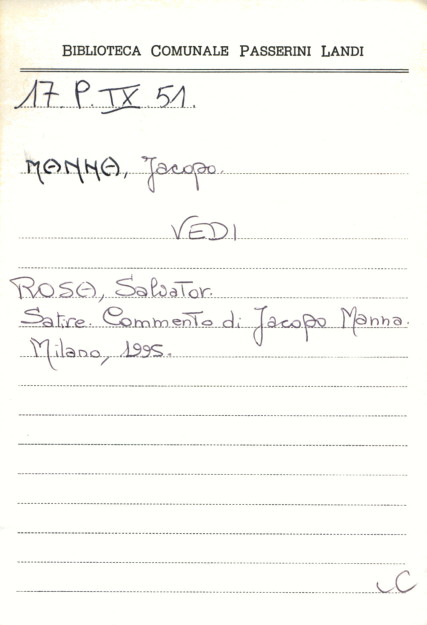 BIBLIOTECA COMUNALE PASSERINI LANDI
17. P. IX 51.
MANNA, Jacopo.
VEDI
ROSA, Salvator.
Satire. Commento di Jacopo Manna.
Milano, 1995.